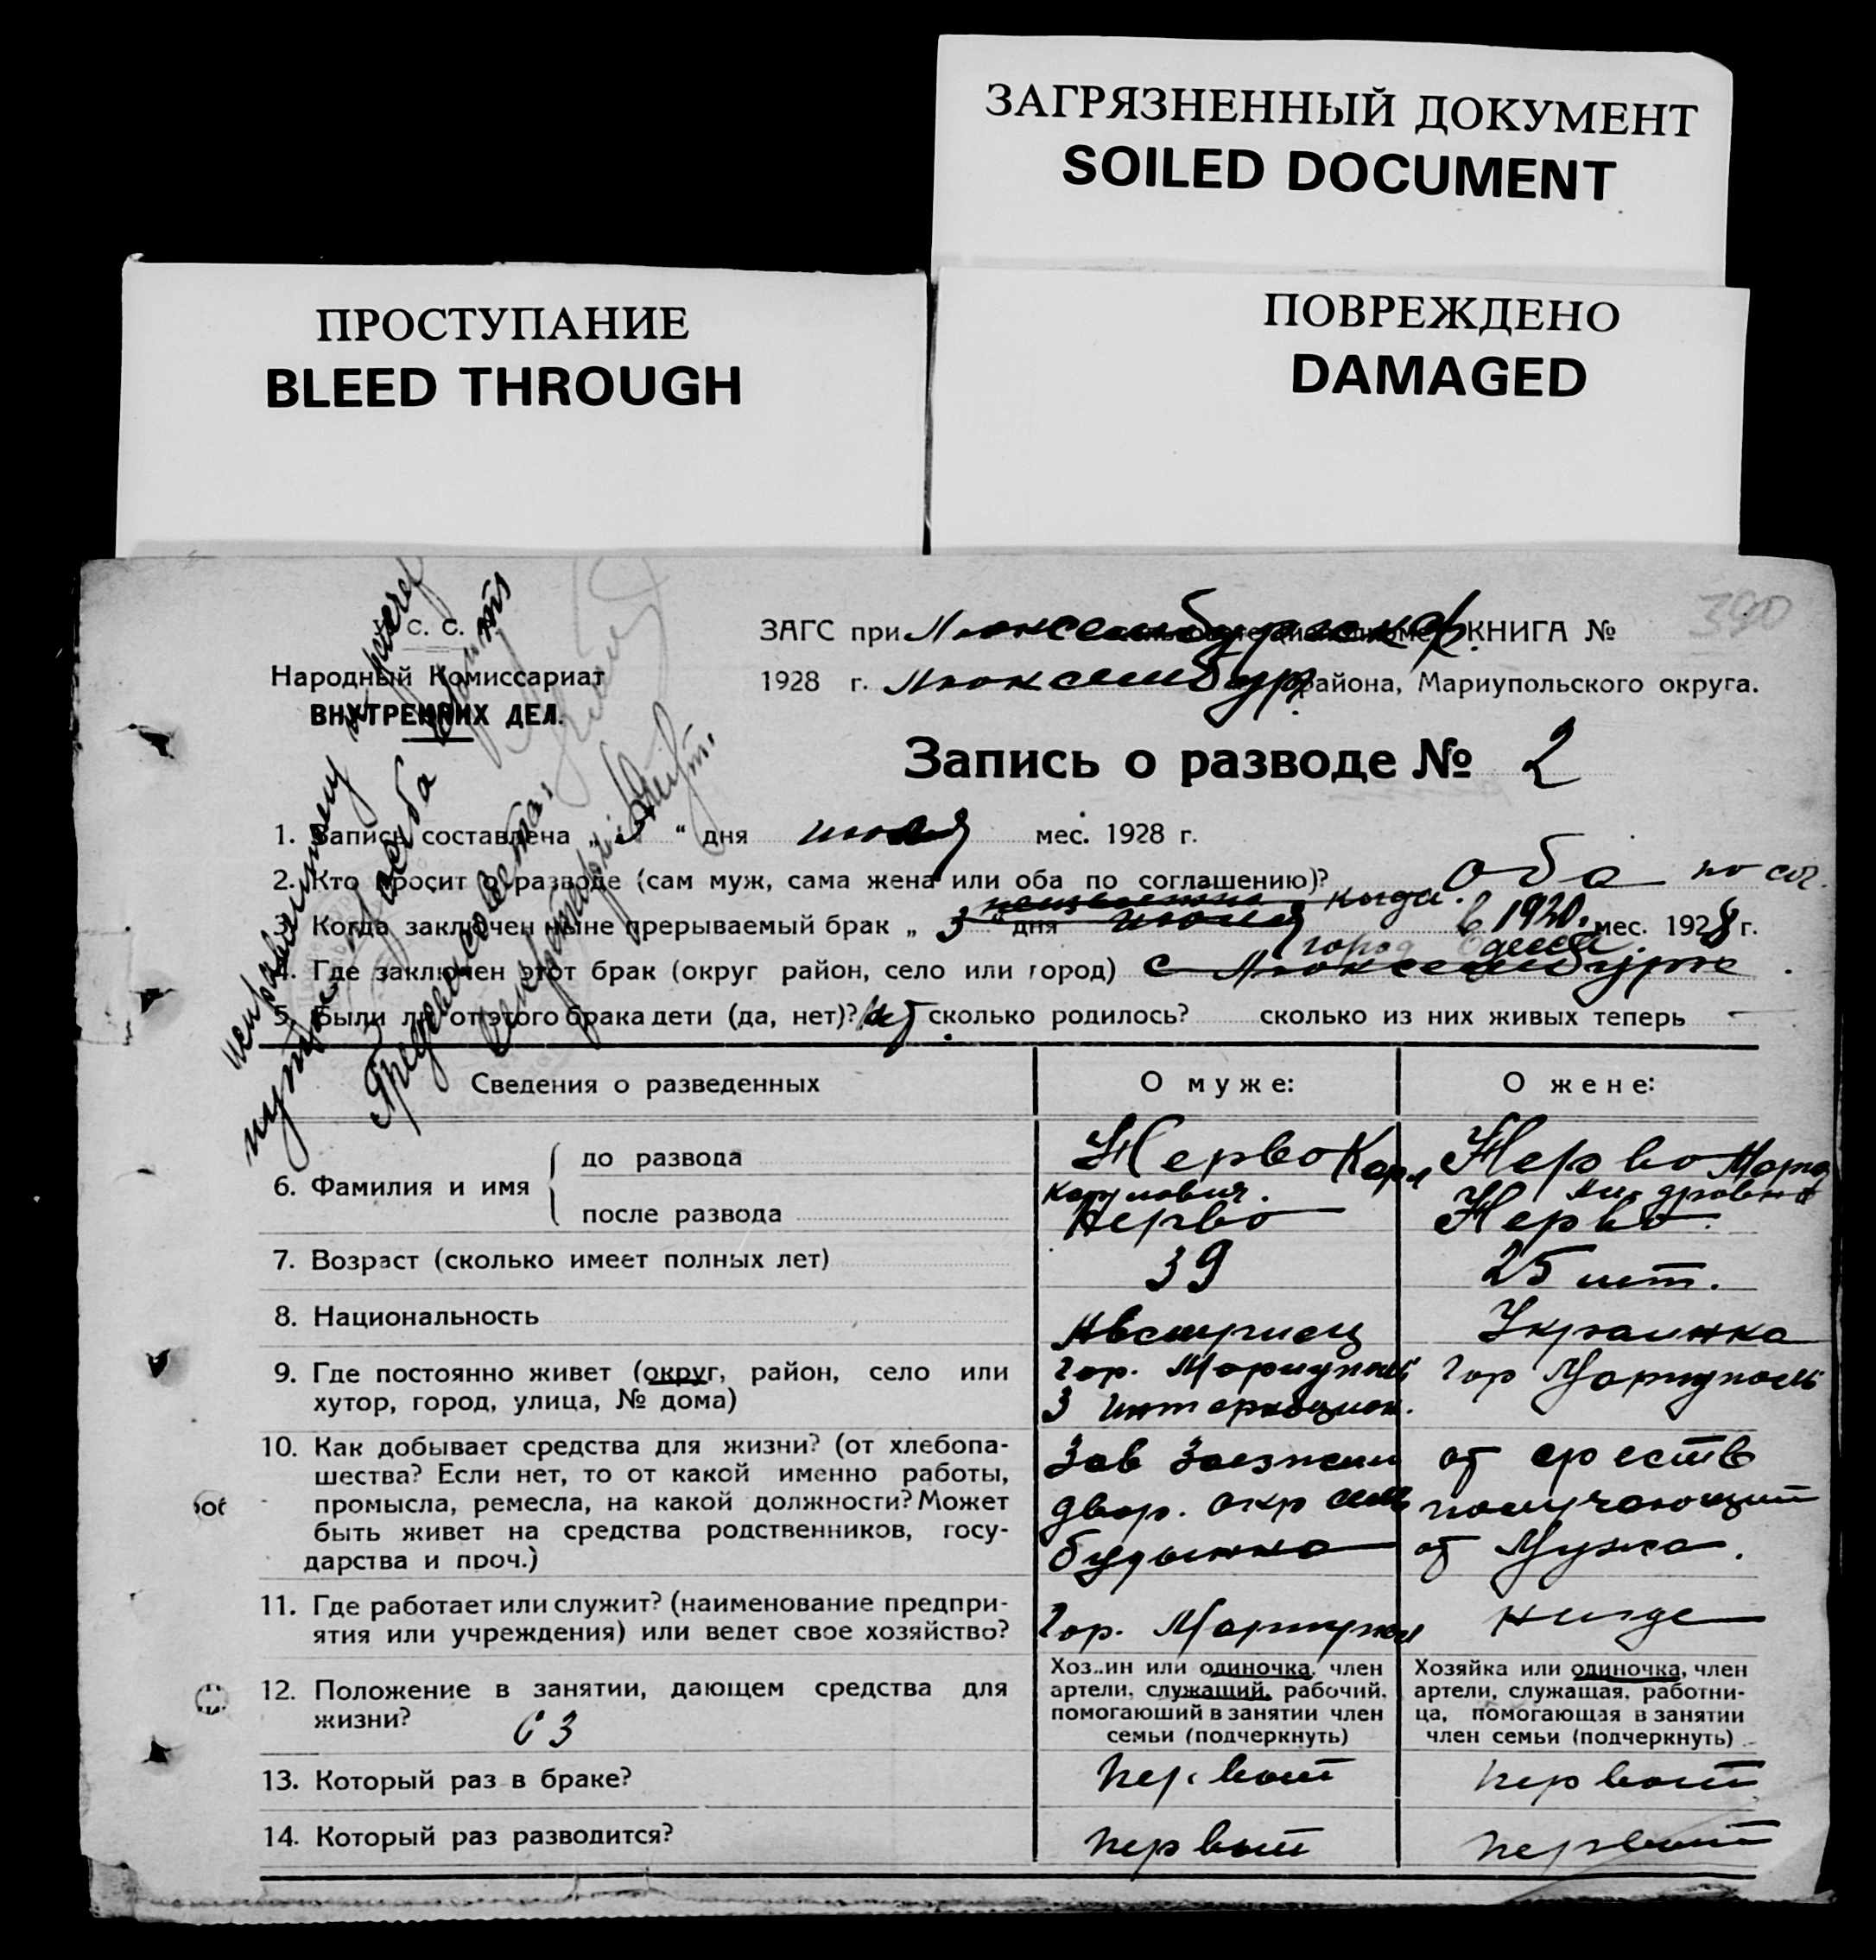 ЗАГРЯЗНЕННЫЙ ДОКУМЕНТ
SOILED DOCUMENT
ПРОСТУПАНИЕ
BLEED THROUGH
ПОВРЕЖДЕНО
DAMAGED
390
С. С.
ЗАГС при Люксембургском КНИГА №
Народный Комиссариат
ВНУТРЕННИХ ДЕЛ.
1928 г. Люксембург. района, Мариупольского округа.
Запись о разводе № 2
1. Запись составлена „ 3 “ дня июля мес. 1928 г.
2. Кто просит о разводе (сам муж, сама жена или оба по соглашению)? Оба по сог.
когда.
3. Когда заключен ныне прерываемый брак „ 3 “ дня июля в 1920. мес. 1928 г.
город Одесса.
4. Где заключен этот брак (округ район, село или город) с Люксембурге
5. Были ли от этого брака дети (да, нет)? нет. сколько родилось? сколько из них живых теперь —
исправленному
Председ. сельсовета.
Секретарь
Сведения о разведенных
О муже:
О жене:
6. Фамилия и имя
до развода
Нерво Карл
Карлович.
Нерво Мария
после развода
Нерво
Нерво.
7. Возраст (сколько имеет полных лет)
39
25 лет.
8. Национальность
Австриец
Украинка
9. Где постоянно живет (округ, район, село или
хутор, город, улица, № дома)
Гор. Мариуполь
3 Интернацион.
Гор Мариуполь
10. Как добывает средства для жизни? (от хлебопа-
шества? Если нет, то от какой именно работы,
промысла, ремесла, на какой должности? Может
быть живет на средства родственников, госу-
дарства и проч.)
Зав Заезжим
двор. окр сель
будынка
от средств
получающий
от Мужа.
11. Где работает или служит? (наименование предпри-
ятия или учреждения) или ведет свое хозяйство?
Гор. Мариупол
нигде
12. Положение в занятии, дающем средства для
жизни?
63
Хоз..ин или одиночка, член
артели, служащий, рабочий,
помогающий в занятии член
семьи (подчеркнуть)
Хозяйка или одиночка, член
артели, служащая, работни-
ца, помогающая в занятии
член семьи (подчеркнуть)
13. Который раз в браке?
Первый
первый
14. Который раз разводится?
первый
первый